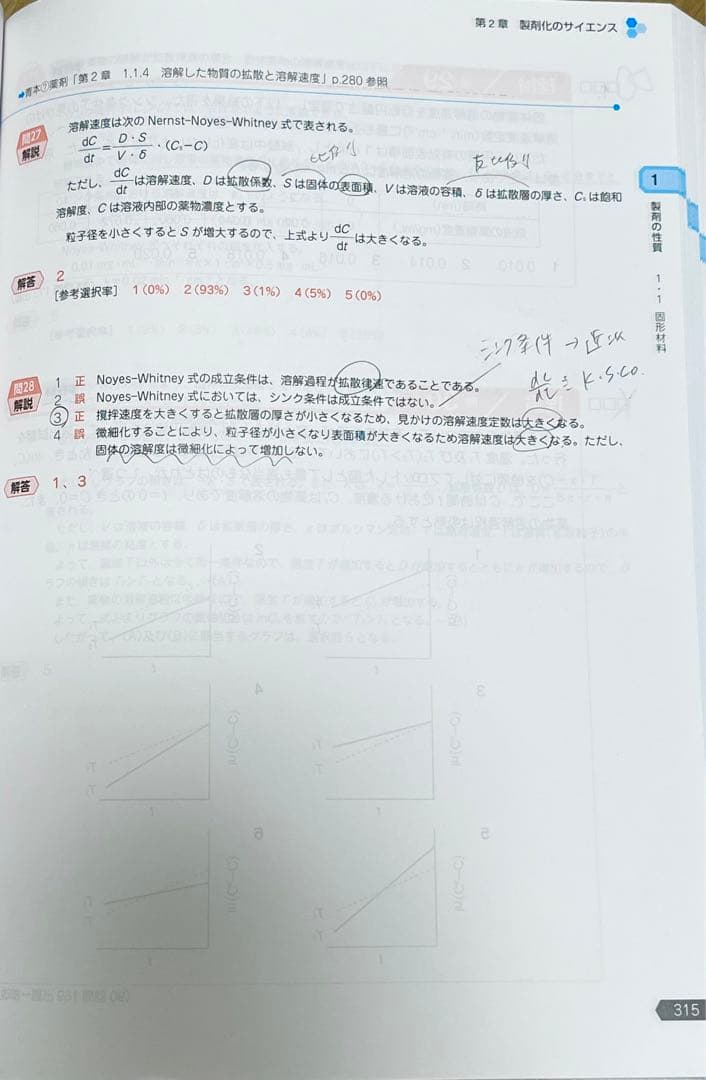 第2章 製剤化のサイエンス
➡青本⑦薬剤「第2章 1.1.4 溶解した物質の拡散と溶解速度」p.280 参照
問27
解説
溶解速度は次の Nernst-Noyes-Whitney 式で表される。
dC/dt = D・S/V・δ ・(Cₛ−C)
比例
反比例
ただし、dC/dt は溶解速度、D は拡散係数、S は固体の表面積、V は溶液の容積、δ は拡散層の厚さ、Cₛ は飽和
溶解度、C は溶液内部の薬物濃度とする。
粒子径を小さくすると S が増大するので、上式より dC/dt は大きくなる。
解答 2
[参考選択率] 1(0%) 2(93%) 3(1%) 4(5%) 5(0%)
1
製剤の性質
1・1 固形材料
シンク条件 →
dc/dt ≒ K・S・Co.
問28
解説
1 正 Noyes-Whitney 式の成立条件は、溶解過程が拡散律速であることである。
2 誤 Noyes-Whitney 式においては、シンク条件は成立条件ではない。
3 正 撹拌速度を大きくすると拡散層の厚さが小さくなるため、見かけの溶解速度定数は大きくなる。
4 誤 微細化することにより、粒子径が小さくなり表面積が大きくなるため溶解速度は大きくなる。ただし、
固体の溶解度は微細化によって増加しない。
解答 1、3
315